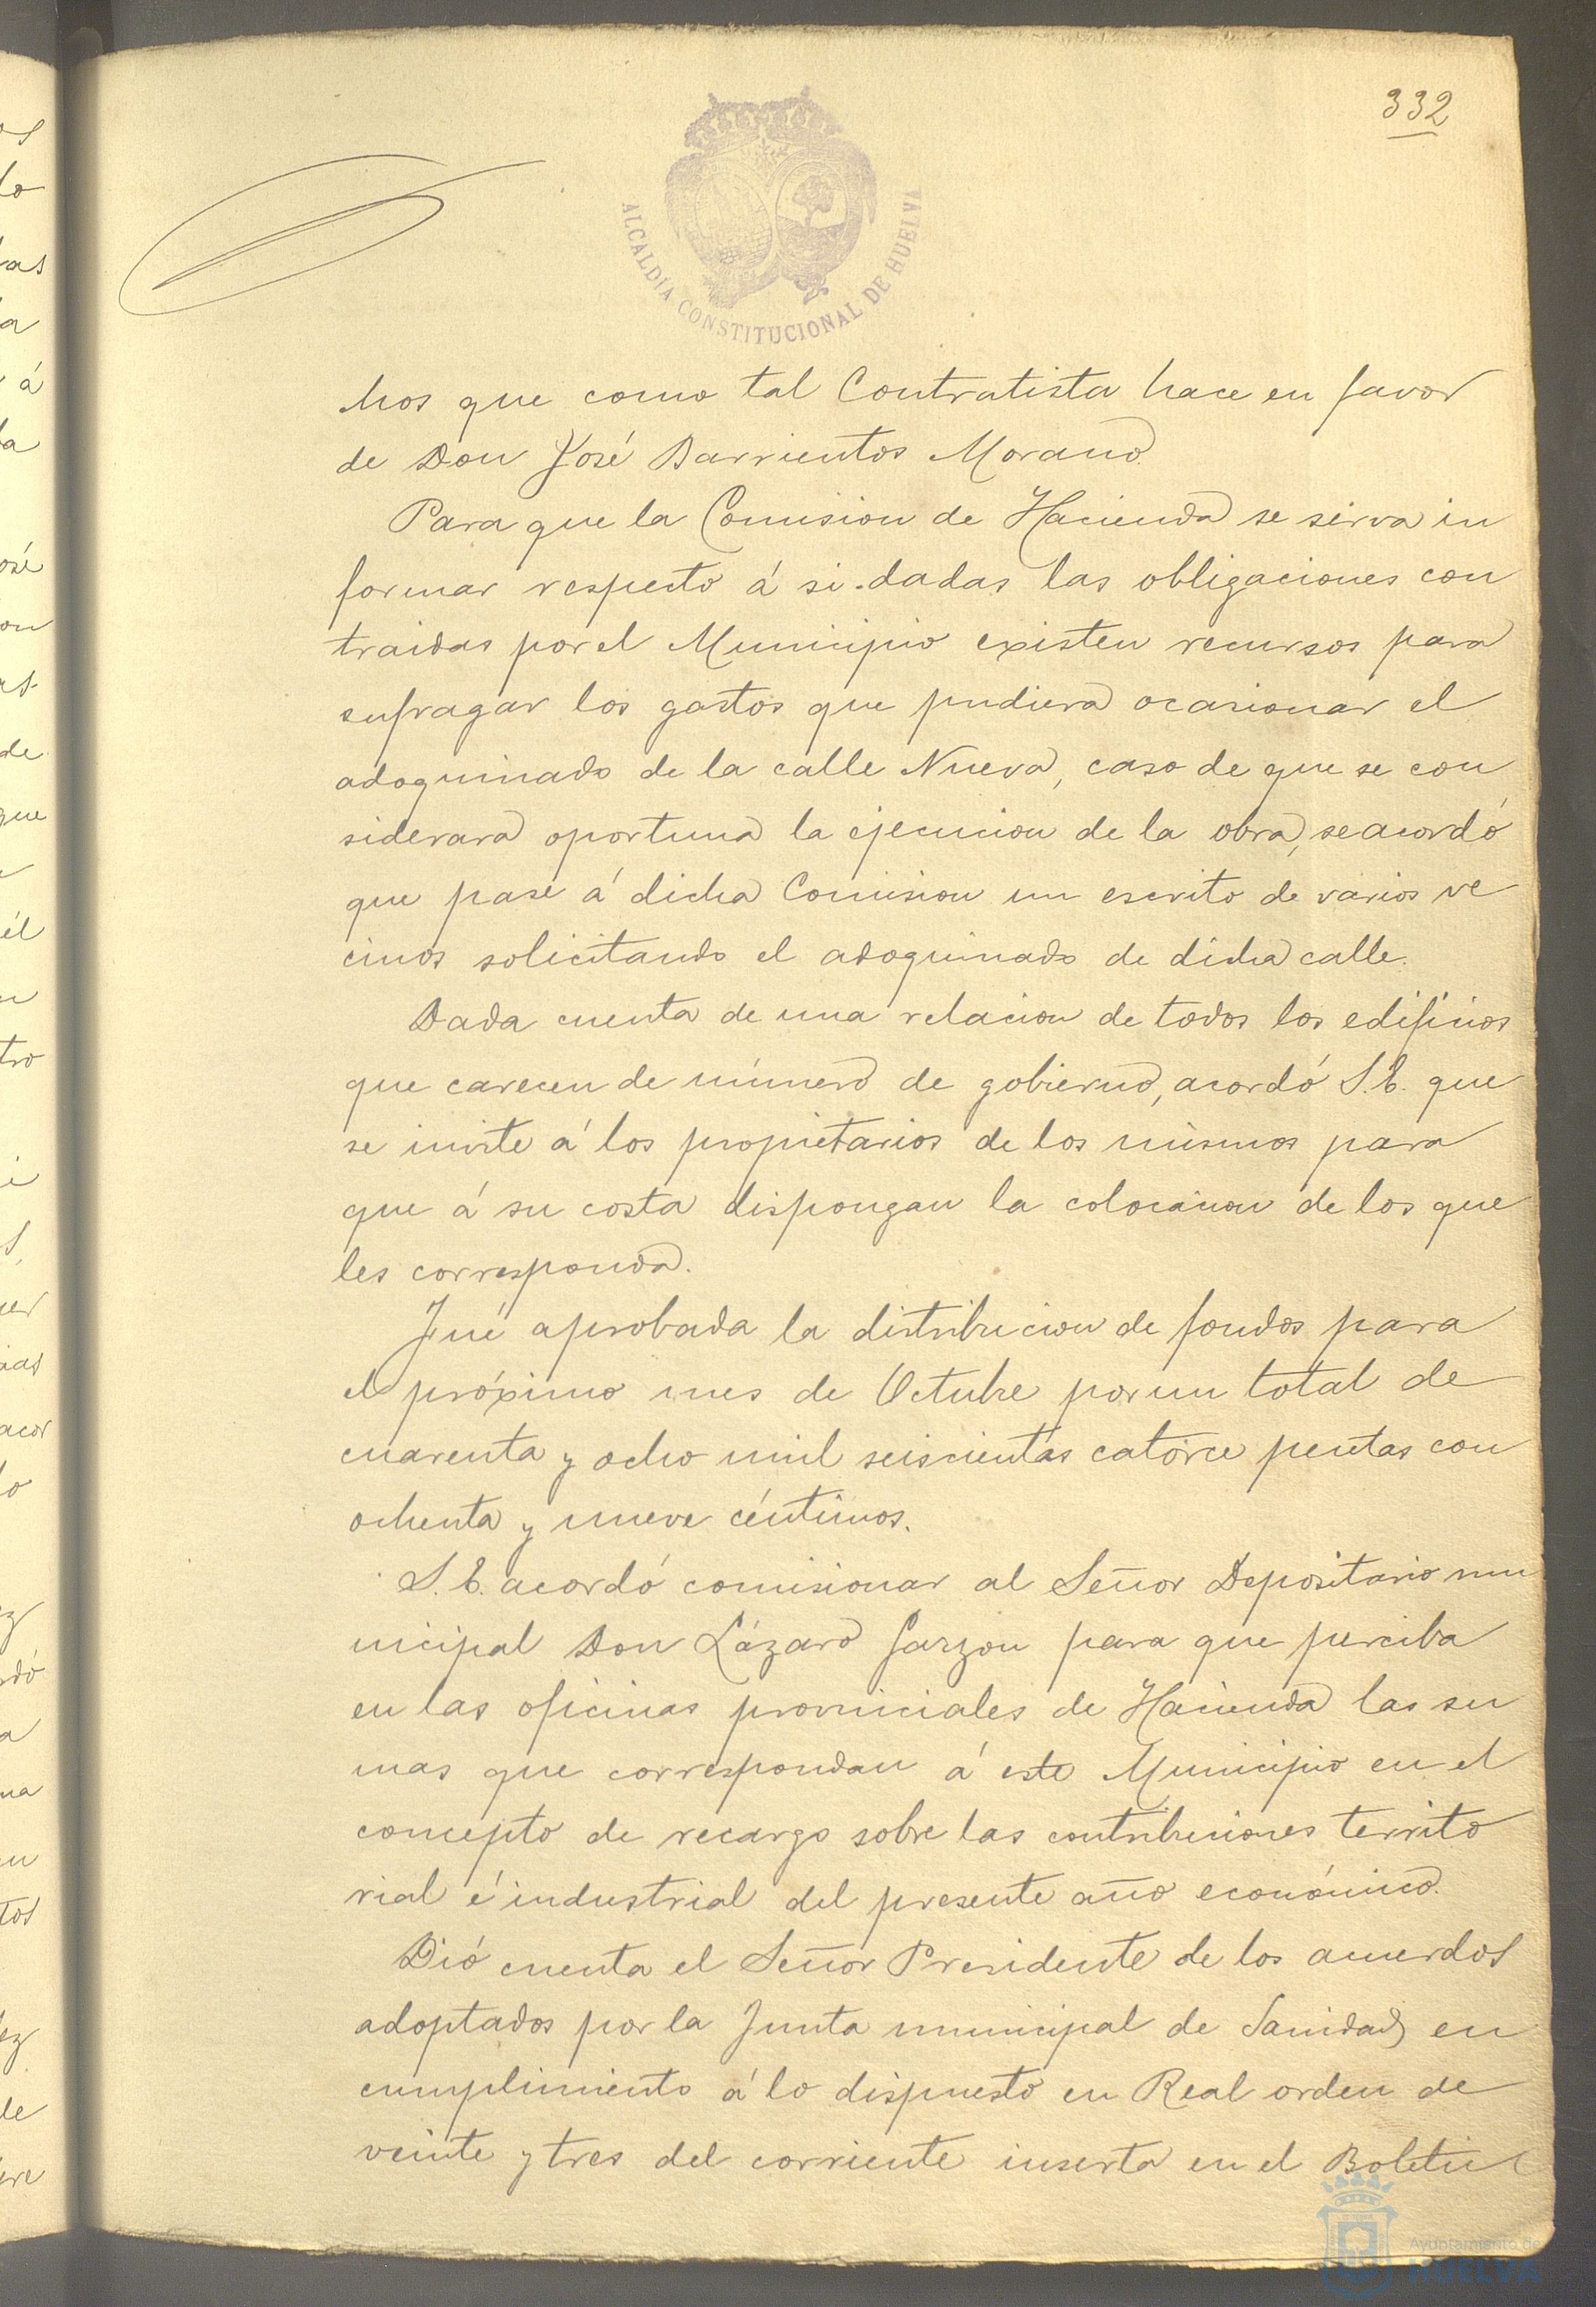 332
ALCALDÍA CONSTITUCIONAL DE HUELVA
chos que como tal Contratista hace en favor
de Don José Barrientos Morano.
Para que la Comision de Hacienda se sirva in
formar respecto á si dadas las obligaciones con
traidas por el Municipio existen recursos para
sufragar los gastos que pudiera ocasionar el
adoquinado de la calle Nueva, caso de que se con
siderara oportuna la ejecucion de la obra, se acordó
que pase á dicha Comision un escrito de varios ve
cinos solicitando el adoquinado de dicha calle.
Dada cuenta de una relacion de todos los edificios
que carecen de número de gobierno, acordó S.E. que
se invite á los propietarios de los mismos para
que á su costa dispongan la colocacion de los que
les corresponda.
Fué aprobada la distribucion de fondos para
el próximo mes de Octubre por un total de
cuarenta y ocho mil seiscientas catorce pesetas con
ochenta y nueve céntimos.
S.E. acordó comisionar al Señor Depositario mu
nicipal Don Lázaro Garzon para que perciba
en las oficinas provinciales de Hacienda las su
mas que correspondan á este Municipio en el
concepto de recargo sobre las contribuciones territo
rial é industrial del presente año económico.
Dió cuenta el Señor Presidente de los acuerdos
adoptados por la Junta municipal de Sanidad en
cumplimiento á lo dispuesto en Real orden de
veinte y tres del corriente inserta en el Boletin
Ayuntamiento de
HUELVA